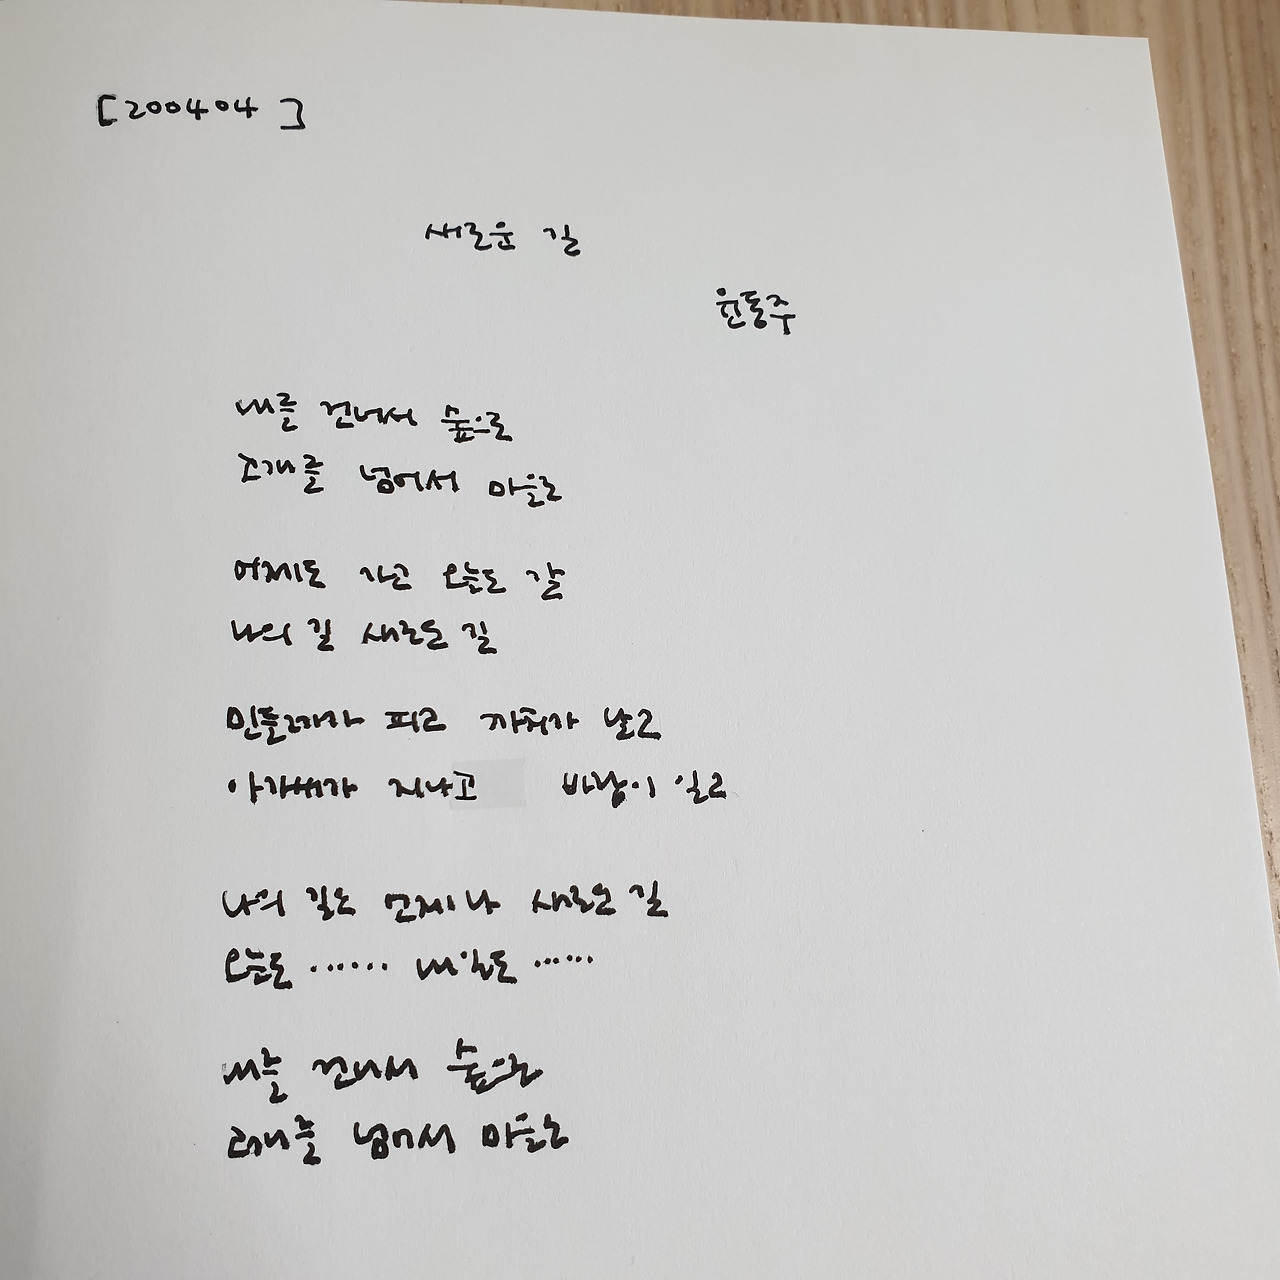 [200404]
새로운 길
윤동주
내를 건너서 숲으로
고개를 넘어서 마을로
어제도 가고 오늘도 갈
나의 길 새로운 길
민들레가 피고 까치가 날고
아가씨가 지나고 바람이 일고
나의 길은 언제나 새로운 길
오늘도 ...... 내일도 ......
내를 건너서 숲으로
고개를 넘어서 마을로